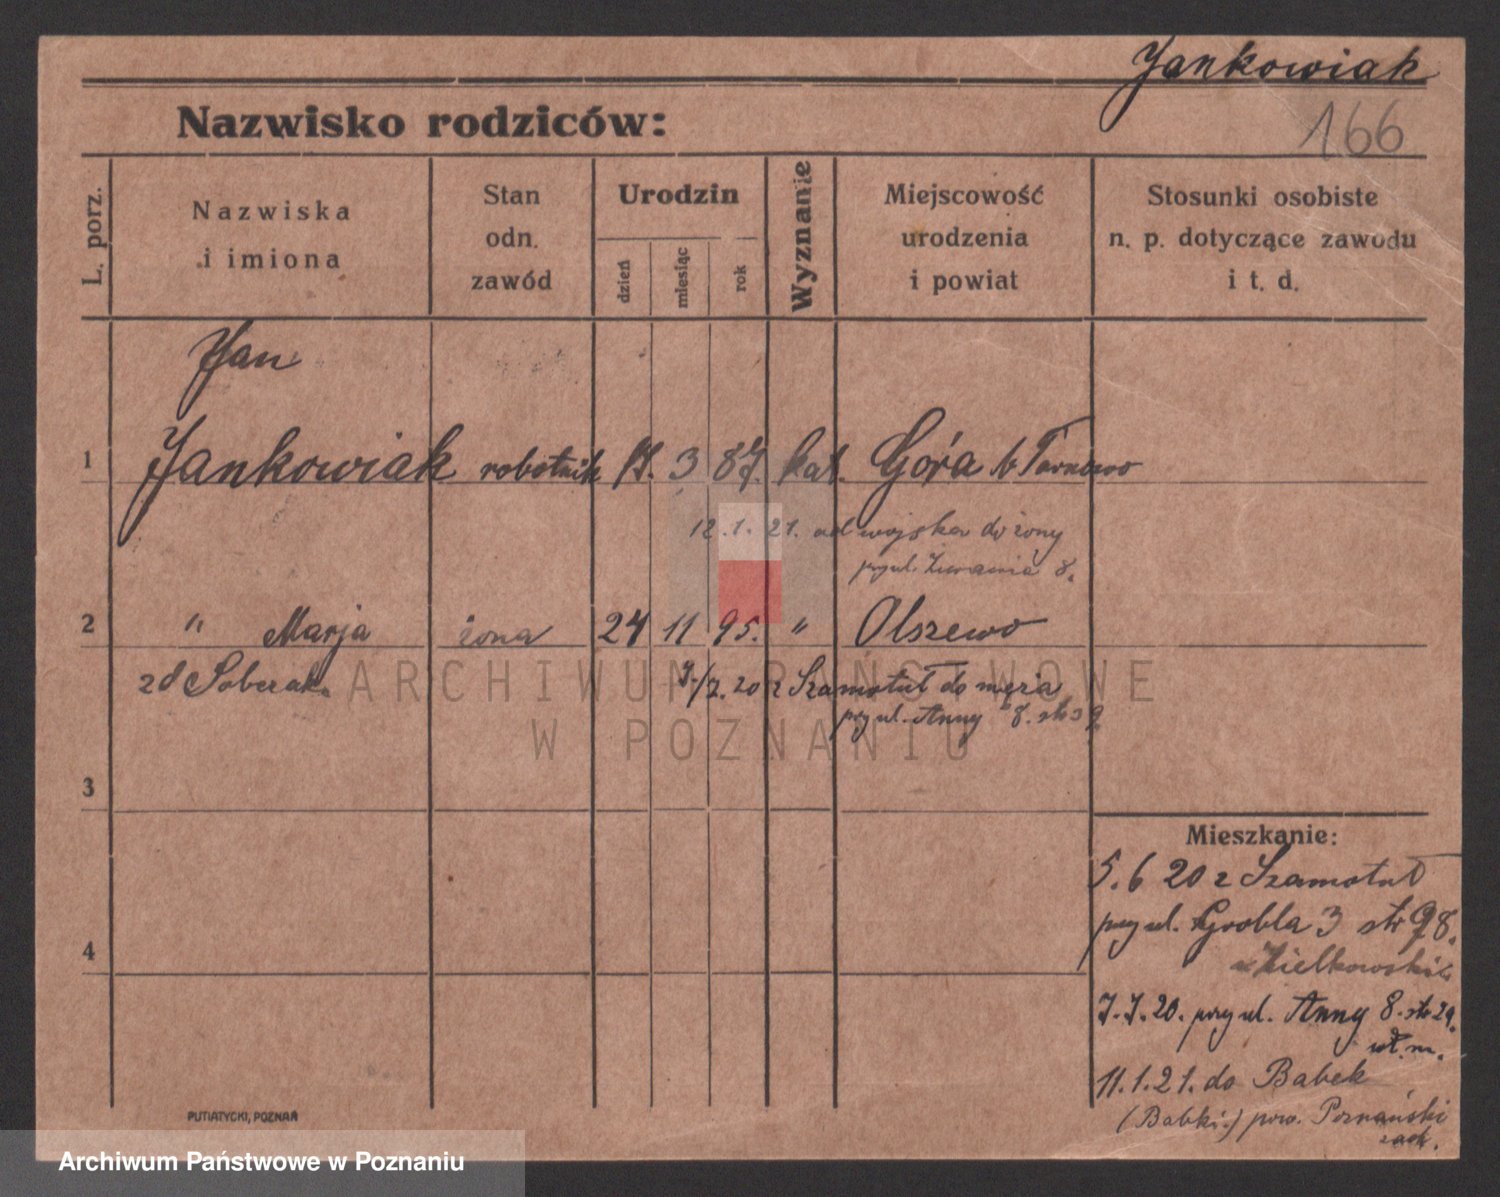 Jankowiak
166
Nazwisko rodziców:
L. porz.
Nazwiska
i imiona
Stan
odn.
zawód
Urodzin
dzień
miesiąc
rok
Wyznanie
Miejscowość
urodzenia
i powiat
Stosunki osobiste
n. p. dotyczące zawodu
i t. d.
Jan
1 Jankowiak robotnik 17. 3 87. kat. Góra b/ Tarnowo
12.1.21. od wojska do żony
przy ul. 8.
2 " Marja żona 24 11 95. " Olszewo
zd Soberak. 20 z Szamotuł do męża
przy ul. Anny 8.
ARCHIWUM PAŃSTWOWE
W POZNANIU
3
4
Mieszkanie:
5.6 20 z Szamotuł
przy ul. Grobla 3 str 98.
u Zielkowskie
7.7.20. przy ul. Anny 8. str 29.
wł. m.
11.1.21. do Babek
(Babki.) pow. Poznański
zach.
PUTIATYCKI, POZNAŃ
Archiwum Państwowe w Poznaniu